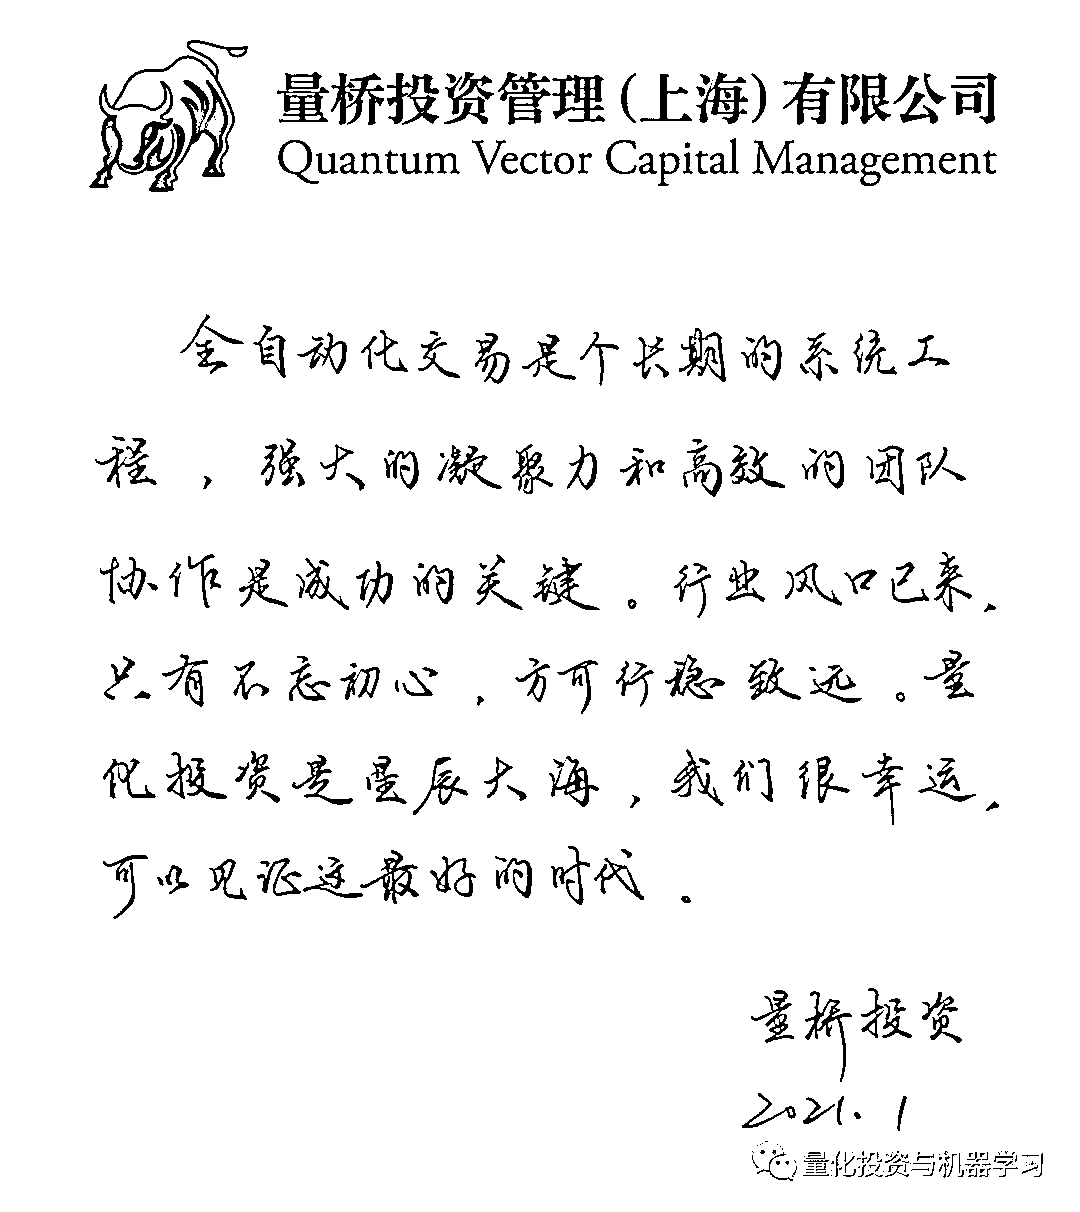 量桥投资管理（上海）有限公司
Quantum Vector Capital Management
全自动化交易是个长期的系统工
程，强大的凝聚力和高效的团队
协作是成功的关键。行业风口已来，
只有不忘初心，方可行稳致远。量
化投资是星辰大海，我们很幸运，
可以见证这最好的时代。
量桥投资
2021.1
量化投资与机器学习